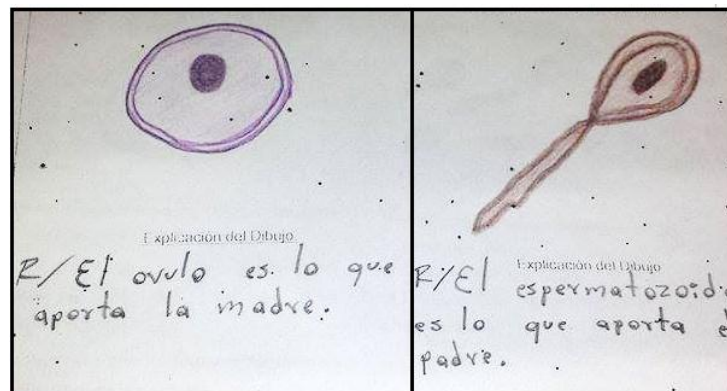 Explicación del Dibujo
R/El ovulo es lo que
aporta la madre.
Explicación del Dibujo
R/El espermatozoid
es lo que aporta e
padre.